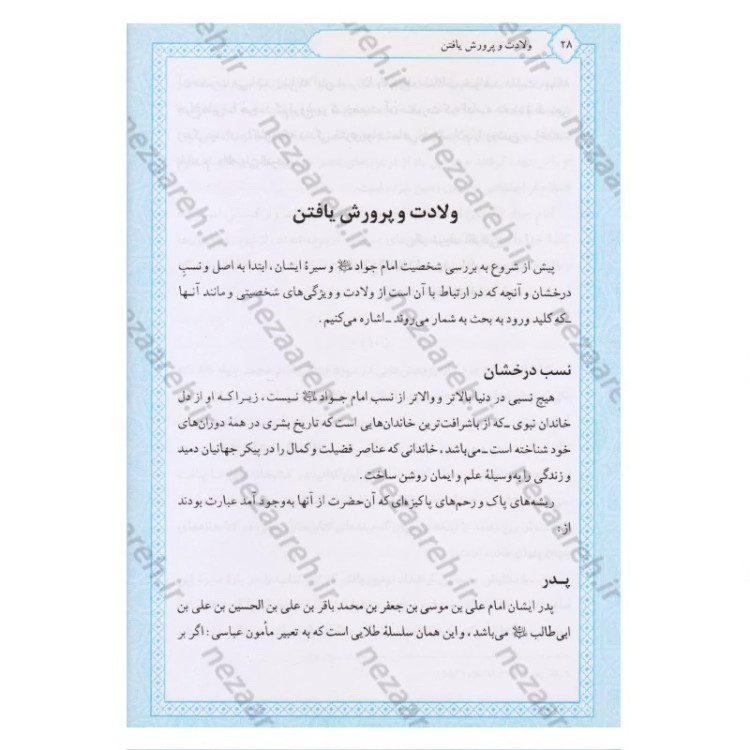 ۲۸ ولادت و پرورش یافتن
ولادت و پرورش یافتن
پیش از شروع به بررسی شخصیت امام جواد علیه‌السلام و سیرهٔ ایشان، ابتدا به اصل و نسبِ
درخشان و آنچه که در ارتباط با آن است از ولادت و ویژگی‌های شخصیتی و مانند آنها
ـ که کلید ورود به بحث به شمار می‌روند ـ اشاره می‌کنیم.
نسب درخشان
هیچ نسبی در دنیا بالاتر و والاتر از نسب امام جواد علیه‌السلام نیست، زیرا که او از دل
خاندان نبوی ـ که از باشرافت‌ترین خاندان‌هایی است که تاریخ بشری در همهٔ دوران‌های
خود شناخته است ـ می‌باشد، خاندانی که عناصر فضیلت و کمال را در پیکر جهانیان دمید
و زندگی را به‌وسیلهٔ علم و ایمان روشن ساخت.
ریشه‌های پاک و رحم‌های پاکیزه‌ای که آن‌حضرت از آنها به‌وجود آمد عبارت بودند
از:
پدر
پدر ایشان امام علی بن موسی بن جعفر بن محمد باقر بن علی بن الحسین بن علی بن
ابی‌طالب علیه‌السلام می‌باشد، و این همان سلسلهٔ طلایی است که به تعبیر مأمون عباسی: اگر بر
nezaareh.ir